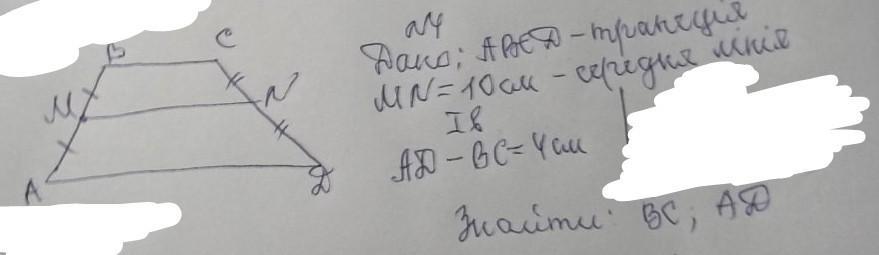 №4
Дано: ABCD - трапеція
MN = 10 см - середня лінія
I в
AD - BC = 4 см
Знайти: BC; AD
B
C
M
N
A
D